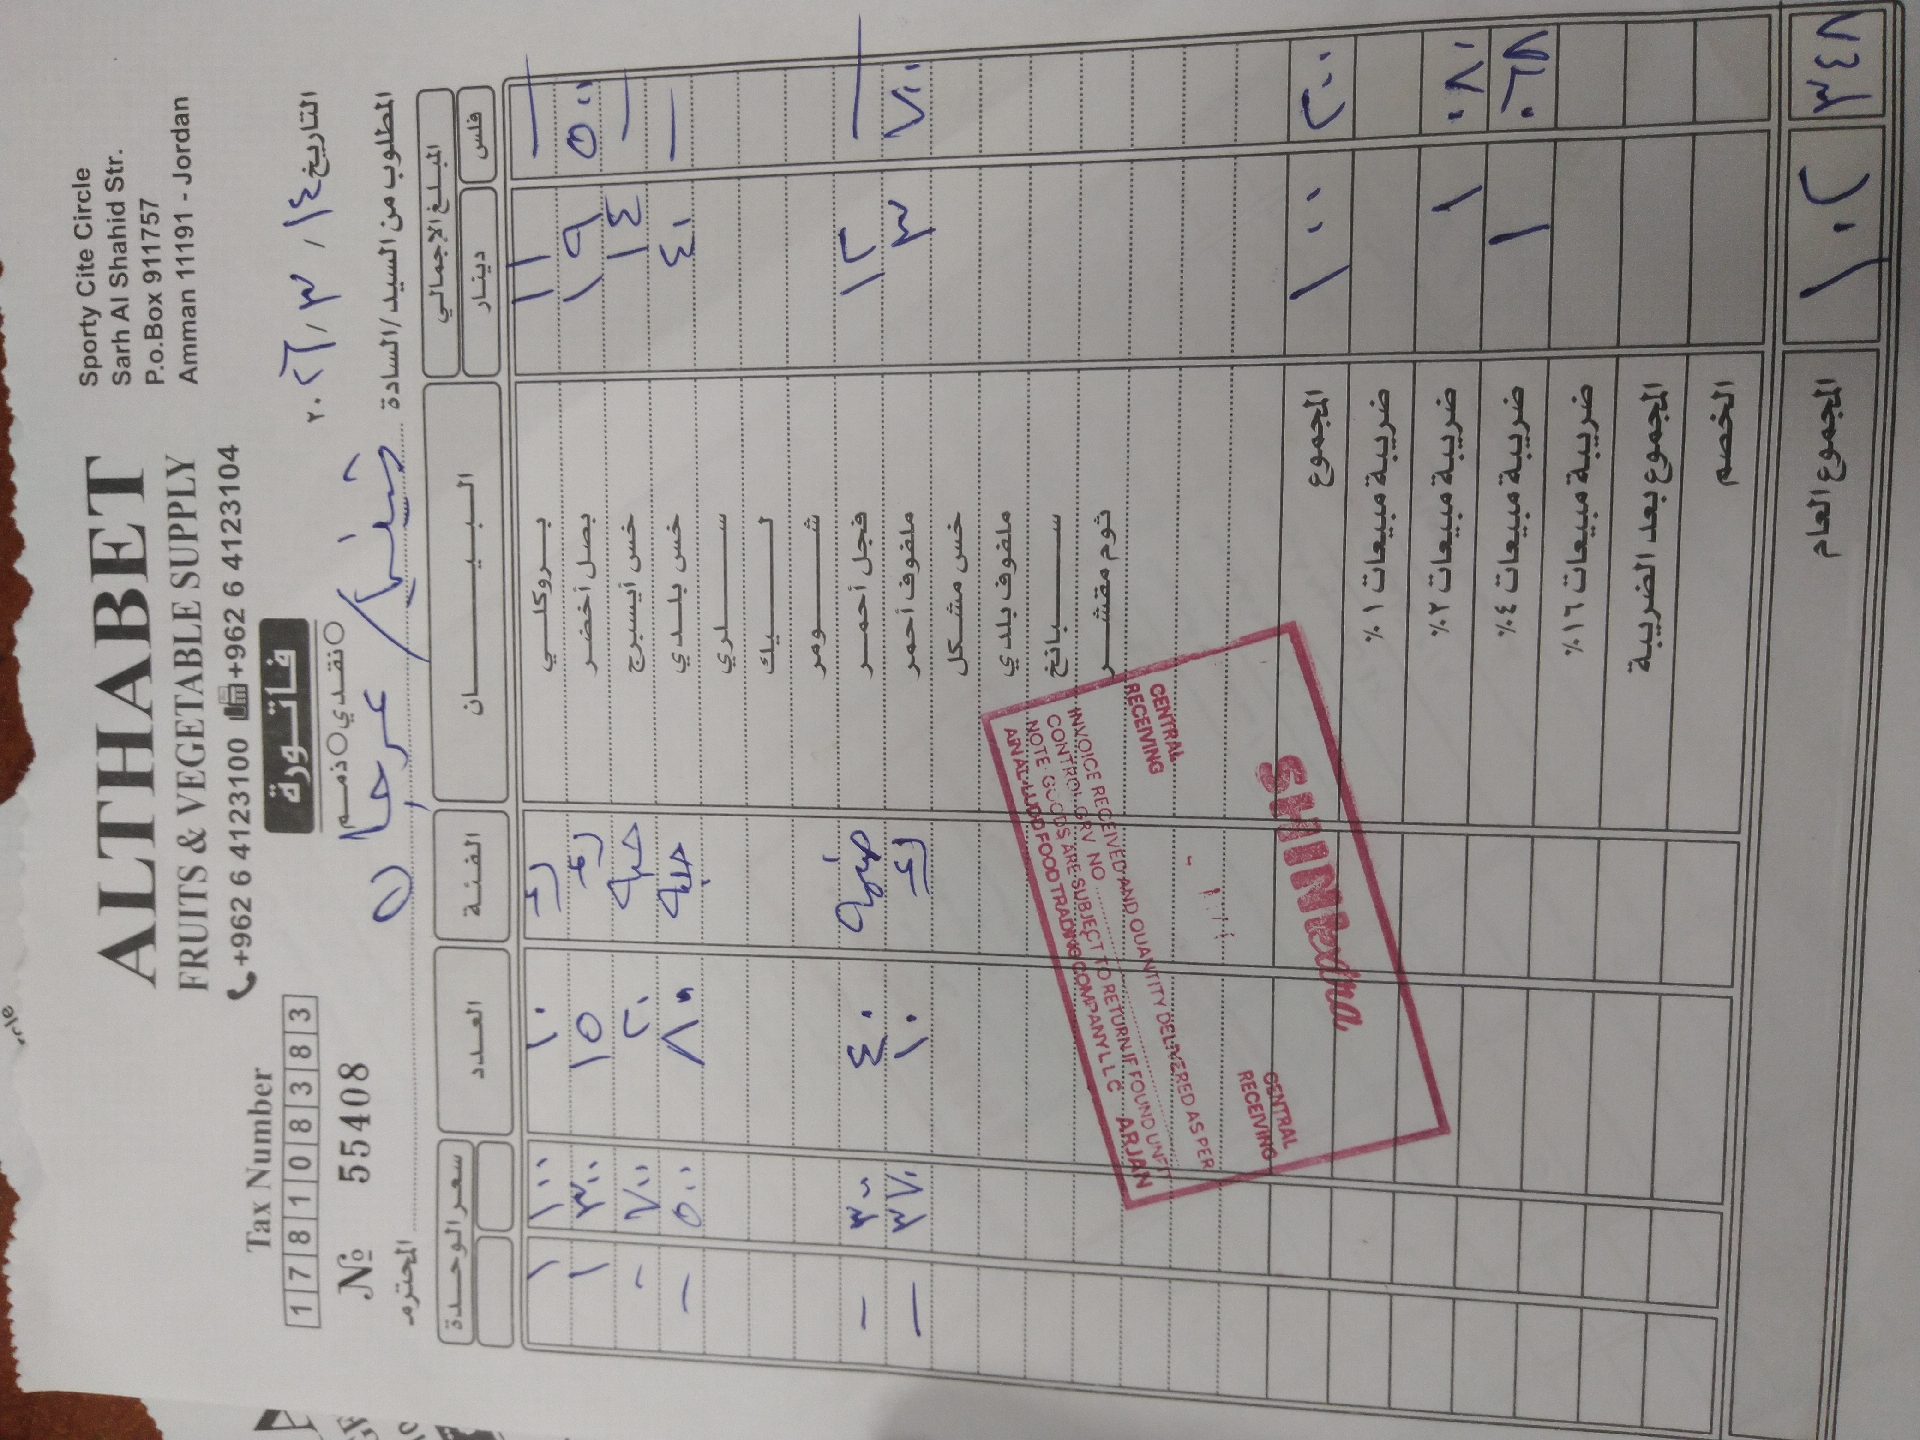 ALTHABET
FRUITS & VEGETABLE SUPPLY
+962 6 4123100 +962 6 4123104
Sporty Cite Circle
Sarh Al Shahid Str.
P.o.Box 911757
Amman 11191 - Jordan
Tax Number
1 7 8 1 0 8 3 8 3
№ 55408
فاتورة
نقدي ذمم
التاريخ ١٤ / ٣ / ٢٠٢٦
المطلوب من السيد/السادة
المحترم
المبلغ الاجمالي البيان الفئة العدد سعر الوحدة
فلس دينار
— ١١ بروكلي ١٠ ١٠٠ ١
٥٠٠ ١٩ بصل أخضر ١٥ ٣٠٠ ١
— ١٤ خس أيسبرج حبة ٢٠ ٧٠٠ -
— ٤٠ خس بلدي حبة ٨٠ ٥٠٠ -
سلري
ليك
شومر
— ١٢ فجل أحمر ٤٠ ٣٠٠ -
٧٠٠ ٣ ملفوف أحمر ١٠ ٣٧٠ —
خس مشكل
ملفوف بلدي
سبانخ
ثوم مقشر
٢٠٠ ١٠٠ المجموع
ضريبة مبيعات ١٪
٠٨٠ ١ ضريبة مبيعات ٢٪
٠٦٨ ١ ضريبة مبيعات ٤٪
ضريبة مبيعات ١٦٪
المجموع بعد الضريبة
الخصم
٣٤٨ ١٠٢ المجموع العام
AIN AL-LUDD FOOD TRADING COMPANY LLC ARJAN
NOTE GOODS ARE SUBJECT TO RETURN IF FOUND UNFIT
CONTROL GRV NO
INVOICE RECEIVED AND QUANTITY DELIVERED AS PER
CENTRAL RECEIVING
CENTRAL RECEIVING
SHINedna